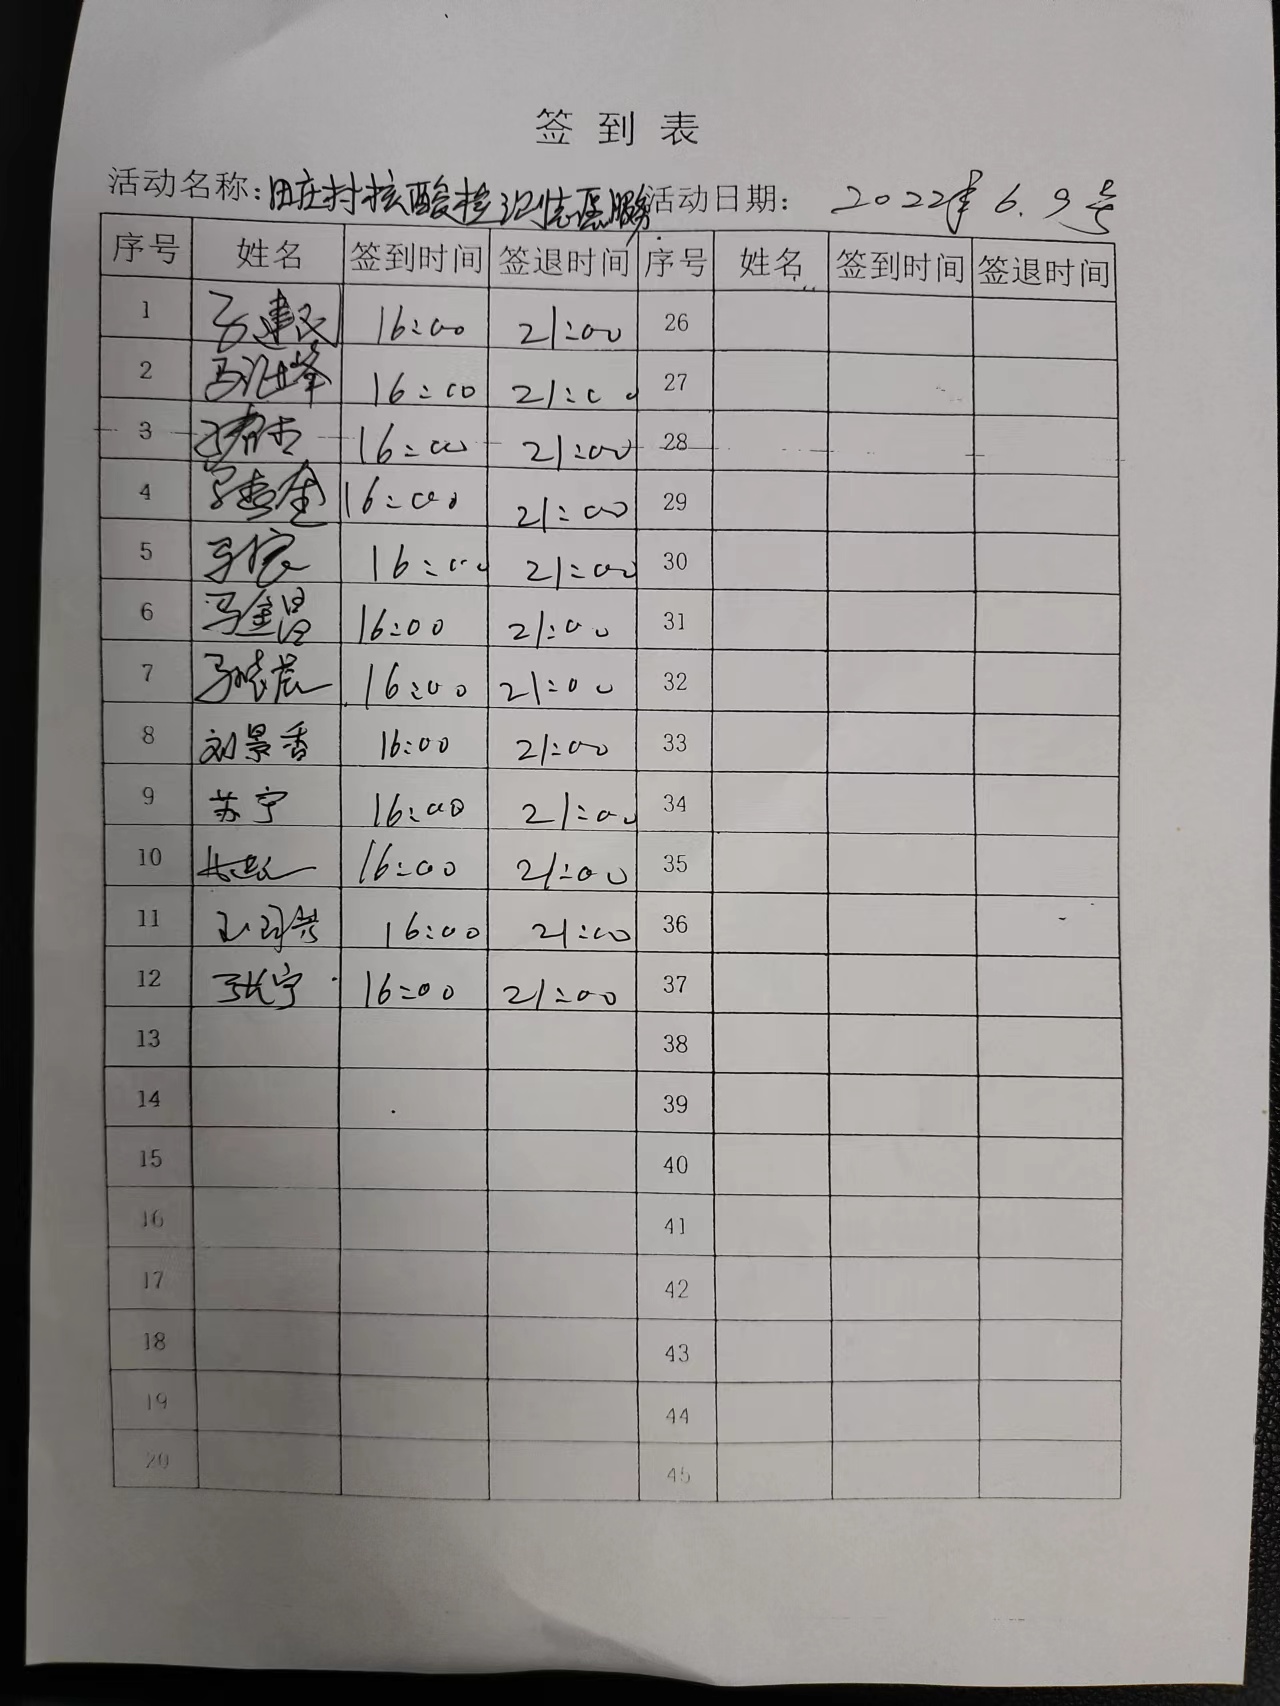 签到表
活动名称:田庄村核酸检测志愿服务 活动日期: 2022年6.9号
序号 姓名 签到时间 签退时间 序号 姓名 签到时间 签退时间
1 16:00 21:00 26
2 16:00 21:00 27
3 16:00 21:00 28
4 16:00 21:00 29
5 16:00 21:00 30
6 16:00 21:00 31
7 马晓晨 16:00 21:00 32
8 刘景香 16:00 21:00 33
9 苏宁 16:00 21:00 34
10 16:00 21:00 35
11 16:00 21:00 36
12 16:00 21:00 37
13 38
14 39
15 40
16 41
17 42
18 43
19 44
20 45